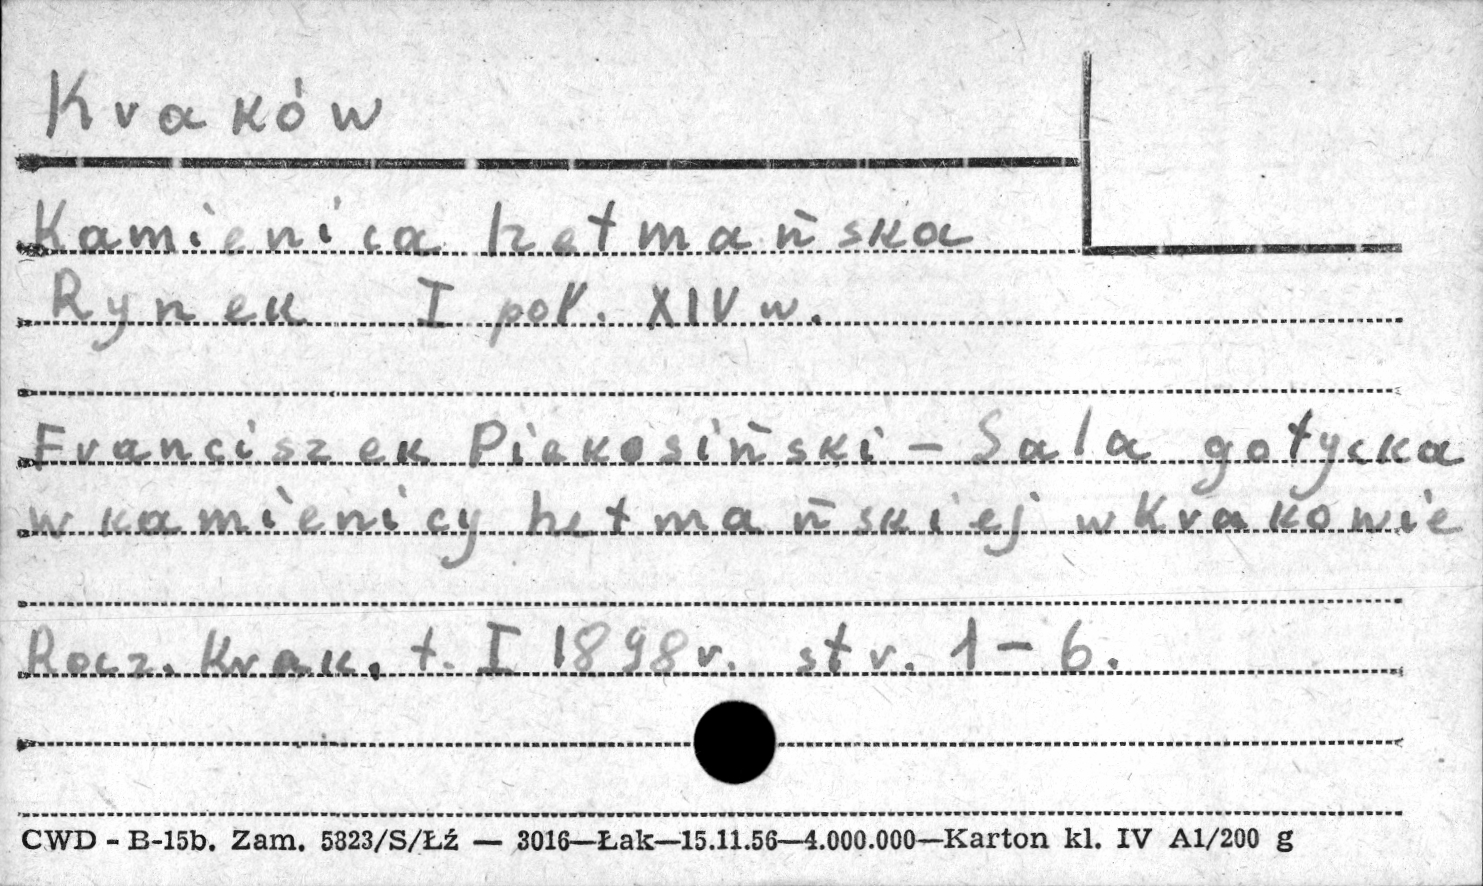 Kraków
Kamienica hetmańska
Rynek I poł. XIV w.
Franciszek Piekosiński - Sala gotycka
w kamienicy hetmańskiej w Krakowie
Rocz. Krak. t. I 1898 r. str. 1-6.
CWD - B-15b. Zam. 5823/S/Łź — 3016—Łak—15.11.56—4.000.000—Karton kl. IV A1/200 g